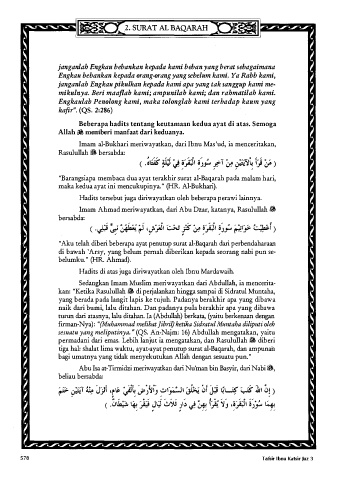 2. SURAT AL BAQARAH
janganlah Engkau bebankan kepada kami beban yang berat sebagaimana
Engkau bebankan kepada orang-orang yang sebelum kami. Ya Rabb kami,
janganlah Engkau pikulkan kepada kami apa yang tak sanggup kami me-
mikulnya. Beri maaflah kami; ampunilah kami; dan rahmatilah kami.
Engkaulah Penolong kami, maka tolonglah kami terhadap kaum yang
kafir". (QS. 2:286)
Beberapa hadits tentang keutamaan kedua ayat di atas. Semoga
Allah ﷻ memberi manfaat dari keduanya.
Imam al-Bukhari meriwayatkan, dari Ibnu Mas'ud, ia menceritakan,
Rasulullah ﷺ bersabda:
( مَنْ قَرَأَ بِالْآيَتَيْنِ مِنْ آخِرِ سُورَةِ الْبَقَرَةِ فِي لَيْلَةٍ كَفَتَاهُ. )
"Barangsiapa membaca dua ayat terakhir surat al-Baqarah pada malam hari,
maka kedua ayat ini mencukupinya." (HR. Al-Bukhari).
Hadits tersebut juga diriwayatkan oleh beberapa perawi lainnya.
Imam Ahmad meriwayatkan, dari Abu Dzar, katanya, Rasulullah ﷺ
bersabda:
( أُعْطِيتُ خَوَاتِيْمَ سُورَةِ الْبَقَرَةِ مِنْ كَنْزٍ تَحْتَ الْعَرْشِ، لَمْ يُعْطَهُنَّ نَبِيٌّ قَبْلِي. )
"Aku telah diberi beberapa ayat penutup surat al-Baqarah dari perbendaharaan
di bawah 'Arsy, yang belum pernah diberikan kepada seorang nabi pun se-
belumku." (HR. Ahmad).
Hadits di atas juga diriwayatkan oleh Ibnu Mardawaih.
Sedangkan Imam Muslim meriwayatkan dari Abdullah, ia mencerita-
kan: "Ketika Rasulullah ﷺ di perjalankan hingga sampai di Sidratul Muntaha,
yang berada pada langit lapis ke tujuh. Padanya berakhir apa yang dibawa
naik dari bumi, lalu ditahan. Dan padanya pula berakhir apa yang dibawa
turun dari atasnya, lalu ditahan. Ia (Abdullah) berkata, (yaitu berkenaan dengan
firman-Nya): "(Muhammad melihat Jibril) ketika Sidratul Muntaha diliputi oleh
sesuatu yang meliputinya." (QS. An-Najm: 16) Abdullah mengatakan, yaitu
permadani dari emas. Lebih lanjut ia mengatakan, dan Rasulullah ﷺ diberi
tiga hal: shalat lima waktu, ayat-ayat penutup surat al-Baqarah, dan ampunan
bagi umatnya yang tidak menyekutukan Allah dengan sesuatu pun."
Abu Isa at-Tirmidzi meriwayatkan dari Nu'man bin Basyir, dari Nabi ﷺ,
beliau bersabda:
( إِنَّ اللهَ كَتَبَ كِتَابًا قَبْلَ أَنْ يَخْلُقَ السَّمَوَاتِ وَالْأَرْضَ بِأَلْفَيْ عَامٍ، أَنْزَلَ مِنْهُ آيَتَيْنِ خَتَمَ
بِهِمَا سُوْرَةَ الْبَقَرَةِ، وَلَا يُقْرَأُ بِهِنَّ فِي دَارٍ ثَلَاثَ لَيَالٍ فَيَقْرَبُهَا شَيْطَانٌ. )
578
Tafsir Ibnu Katsir Juz 3